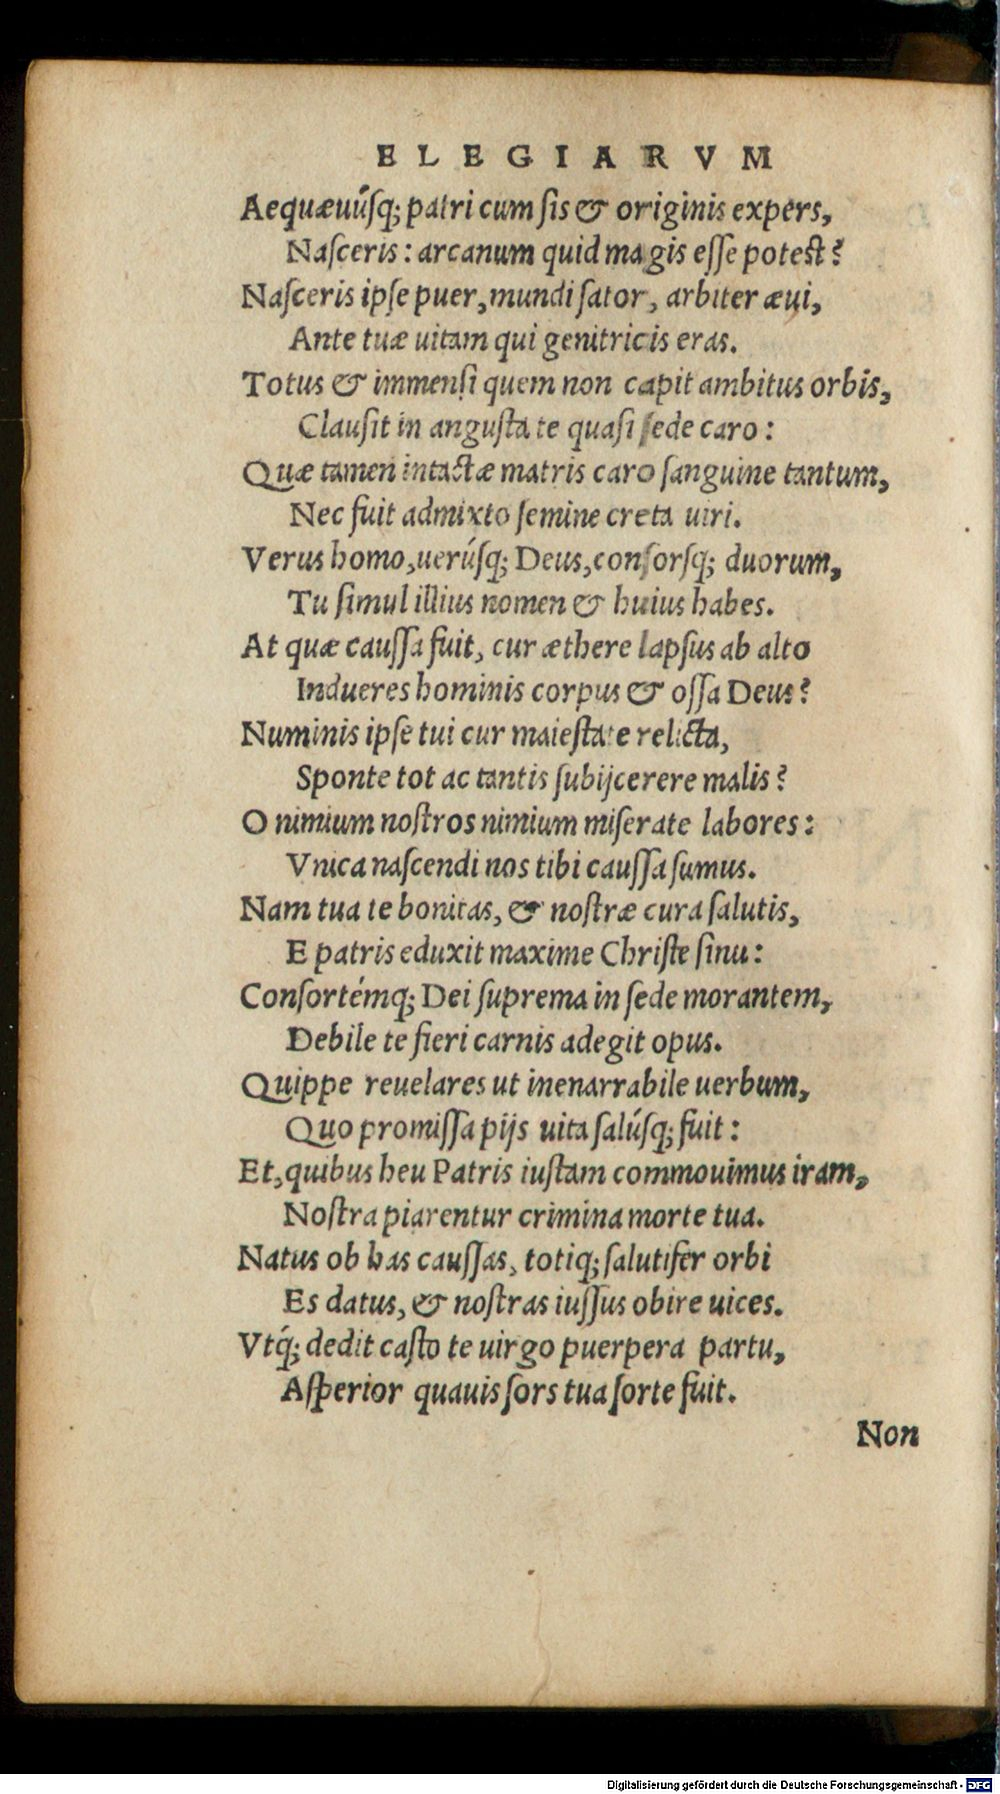 ELEGIARVM
Aequæuúſq; patri cum ſis & originis expers,
Naſceris: arcanum quid magis eſſe poteſt?
Naſceris ipſe puer, mundi ſator, arbiter æui,
Ante tuæ uitam qui genitricis eras.
Totus & immenſi quem non capit ambitus orbis,
Clauſit in anguſta te quaſi ſede caro:
Quæ tamen intactæ matris caro ſanguine tantum,
Nec fuit admixto ſemine creta uiri.
Verus homo, uerúſq; Deus, conſorſq; duorum,
Tu ſimul illius nomen & huius habes.
At quæ cauſſa fuit, cur æthere lapſus ab alto
Indueres hominis corpus & oſſa Deus?
Numinis ipſe tui cur maieſtate relicta,
Sponte tot ac tantis ſubijcerere malis?
O nimium noſtros nimium miſerate labores:
Vnica naſcendi nos tibi cauſſa ſumus.
Nam tua te bonitas, & noſtræ cura ſalutis,
E patris eduxit maxime Chriſte ſinu:
Conſortémq; Dei ſuprema in ſede morantem,
Debile te fieri carnis adegit opus.
Quippe reuelares ut inenarrabile uerbum,
Quo promiſſa pijs uita ſalúſq; fuit:
Et, quibus heu Patris iuſtam commouimus iram,
Noſtra piarentur crimina morte tua.
Natus ob has cauſſas, totiq; ſalutifer orbi
Es datus, & noſtras iuſſus obire uices.
Vtq́; dedit caſto te uirgo puerpera partu,
Aſperior quauis ſors tua ſorte fuit.
Non
Digitalisierung gefördert durch die Deutsche Forschungsgemeinschaft - DFG